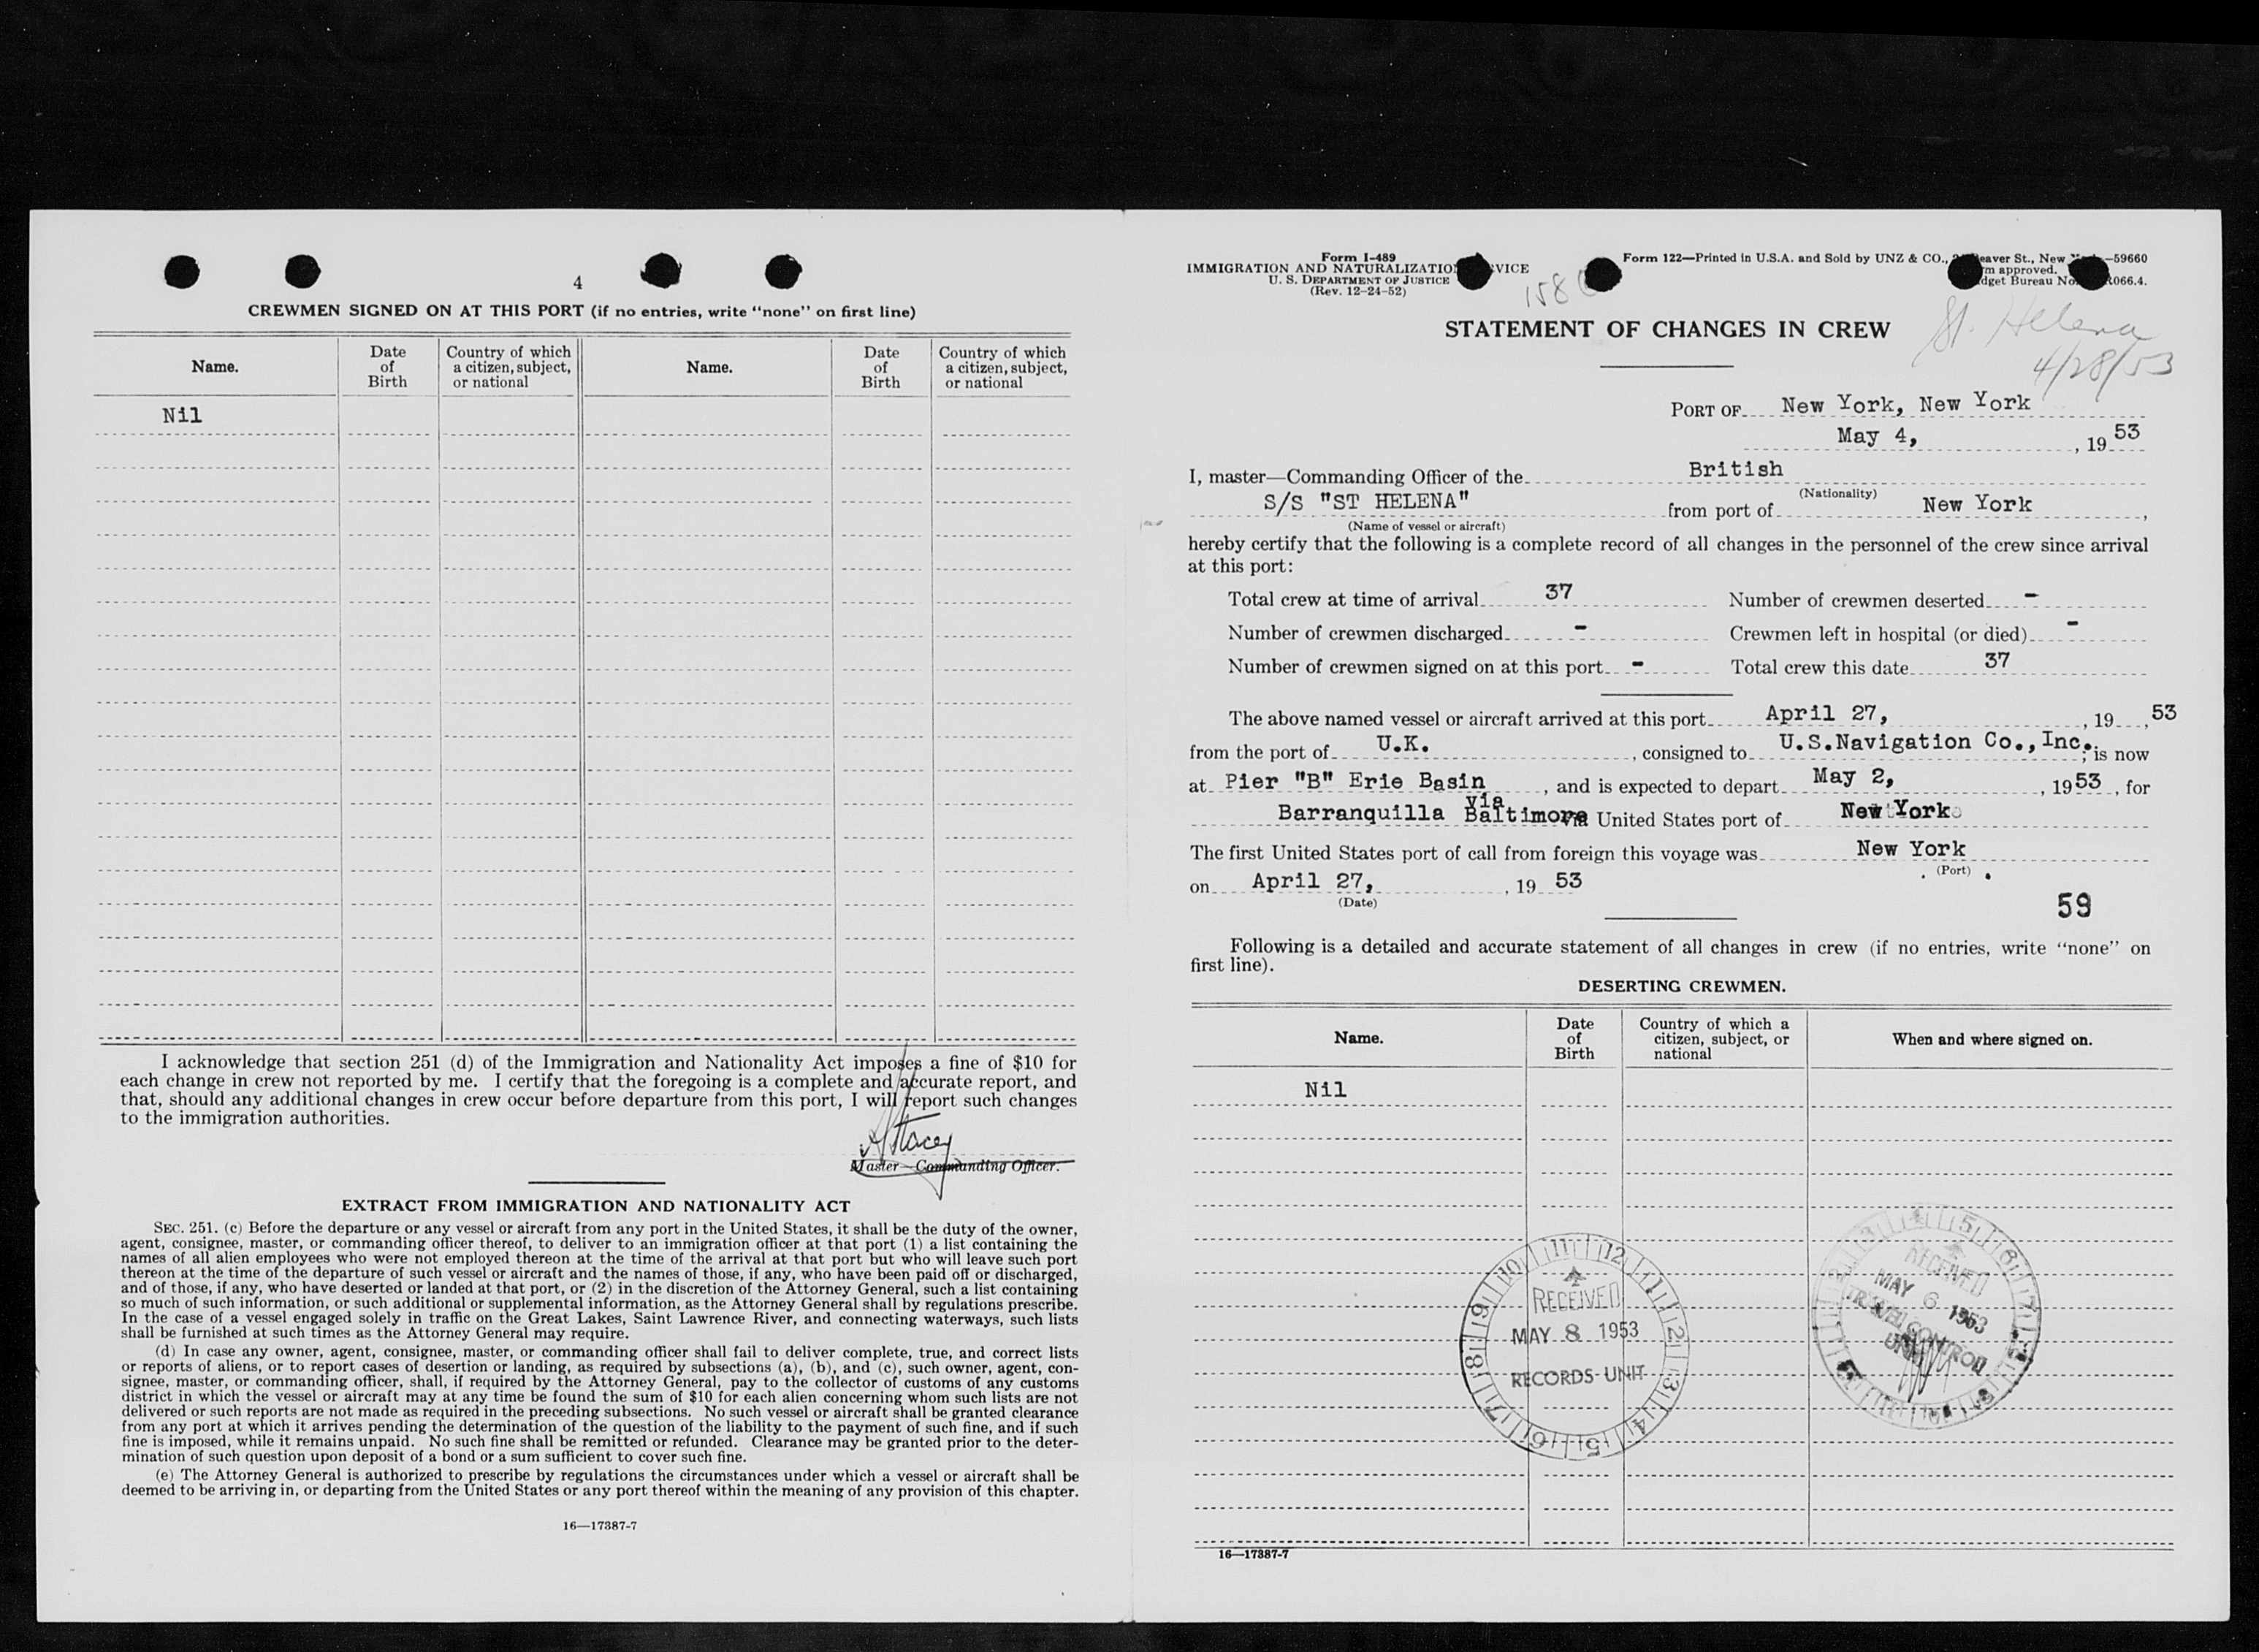 4
CREWMEN SIGNED ON AT THIS PORT (if no entries, write "none" on first line)
Name.
Date
of
Birth
Country of which
a citizen, subject,
or national
Name.
Date
of
Birth
Country of which
a citizen, subject,
or national
Nil
I acknowledge that section 251 (d) of the Immigration and Nationality Act imposes a fine of $10 for
each change in crew not reported by me. I certify that the foregoing is a complete and accurate report, and
that, should any additional changes in crew occur before departure from this port, I will report such changes
to the immigration authorities.
Master—Commanding Officer.
EXTRACT FROM IMMIGRATION AND NATIONALITY ACT
SEC. 251. (c) Before the departure or any vessel or aircraft from any port in the United States, it shall be the duty of the owner,
agent, consignee, master, or commanding officer thereof, to deliver to an immigration officer at that port (1) a list containing the
names of all alien employees who were not employed thereon at the time of the arrival at that port but who will leave such port
thereon at the time of the departure of such vessel or aircraft and the names of those, if any, who have been paid off or discharged,
and of those, if any, who have deserted or landed at that port, or (2) in the discretion of the Attorney General, such a list containing
so much of such information, or such additional or supplemental information, as the Attorney General shall by regulations prescribe.
In the case of a vessel engaged solely in traffic on the Great Lakes, Saint Lawrence River, and connecting waterways, such lists
shall be furnished at such times as the Attorney General may require.
(d) In case any owner, agent, consignee, master, or commanding officer shall fail to deliver complete, true, and correct lists
or reports of aliens, or to report cases of desertion or landing, as required by subsections (a), (b), and (c), such owner, agent, con-
signee, master, or commanding officer, shall, if required by the Attorney General, pay to the collector of customs of any customs
district in which the vessel or aircraft may at any time be found the sum of $10 for each alien concerning whom such lists are not
delivered or such reports are not made as required in the preceding subsections. No such vessel or aircraft shall be granted clearance
from any port at which it arrives pending the determination of the question of the liability to the payment of such fine, and if such
fine is imposed, while it remains unpaid. No such fine shall be remitted or refunded. Clearance may be granted prior to the deter-
mination of such question upon deposit of a bond or a sum sufficient to cover such fine.
(e) The Attorney General is authorized to prescribe by regulations the circumstances under which a vessel or aircraft shall be
deemed to be arriving in, or departing from the United States or any port thereof within the meaning of any provision of this chapter.
16—17387-7
Form I-489
IMMIGRATION AND NATURALIZATIO VICE
U. S. DEPARTMENT OF JUSTICE
(Rev. 12-24-52)
158
Form 122—Printed in U.S.A. and Sold by UNZ & CO., eaver St., New —59660
m approved.
dget Bureau No. R066.4.
St. Helena
4/28/53
STATEMENT OF CHANGES IN CREW
PORT OF New York, New York
May 4, , 19 53
I, master—Commanding Officer of the British
(Nationality)
S/S "ST HELENA" from port of New York ,
(Name of vessel or aircraft)
hereby certify that the following is a complete record of all changes in the personnel of the crew since arrival
at this port:
Total crew at time of arrival 37 Number of crewmen deserted -
Number of crewmen discharged - Crewmen left in hospital (or died) -
Number of crewmen signed on at this port - Total crew this date 37
The above named vessel or aircraft arrived at this port April 27, , 19 , 53
from the port of U.K. , consigned to U.S.Navigation Co., Inc. ; is now
at Pier "B" Erie Basin , and is expected to depart May 2, , 19 53 , for
Barranquilla via Baltimore via United States port of New York
The first United States port of call from foreign this voyage was New York
(Port)
on April 27, , 19 53
(Date)
59
Following is a detailed and accurate statement of all changes in crew (if no entries, write "none" on
first line).
DESERTING CREWMEN.
Name.
Date
of
Birth
Country of which a
citizen, subject, or
national
When and where signed on.
Nil
11 12 1 2 3 4 5 6 7 8 9 10
RECEIVED
MAY 8 1953
RECORDS UNIT
RECEIVED
MAY 6 1953
TRAVEL CONTROL
UNIT
16—17387-7